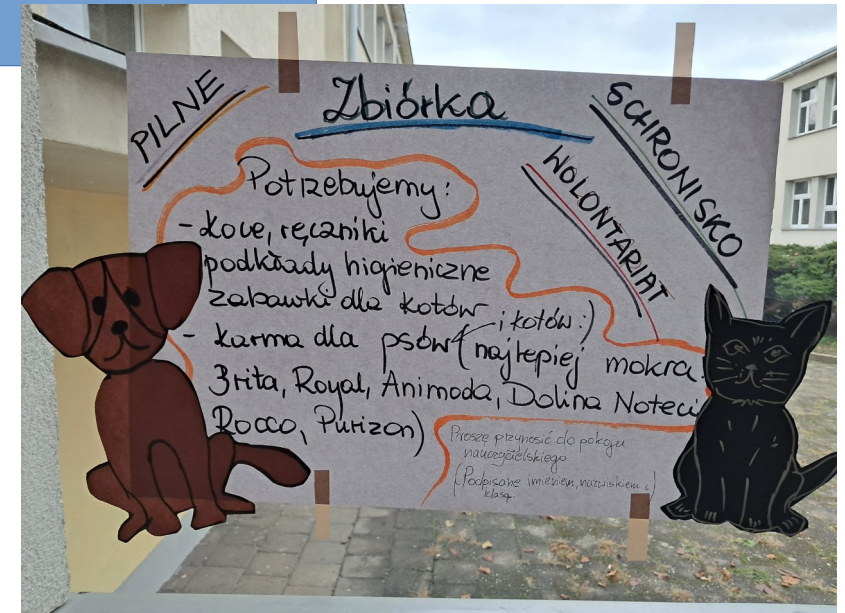 PILNE
Zbiórka
SCHRONISKO
WOLONTARIAT
Potrzebujemy:
- koce, ręczniki
podkłady higieniczne
zabawki dla kotów
- karma dla psów i kotów :)
(najlepiej mokra:
3rita, Royal, Animoda, Dolina Noteci
Rocco, Purizon)
Proszę przynosić do pokoju
nauczycielskiego
(Podpisane imieniem, nazwiskiem i
klasą)